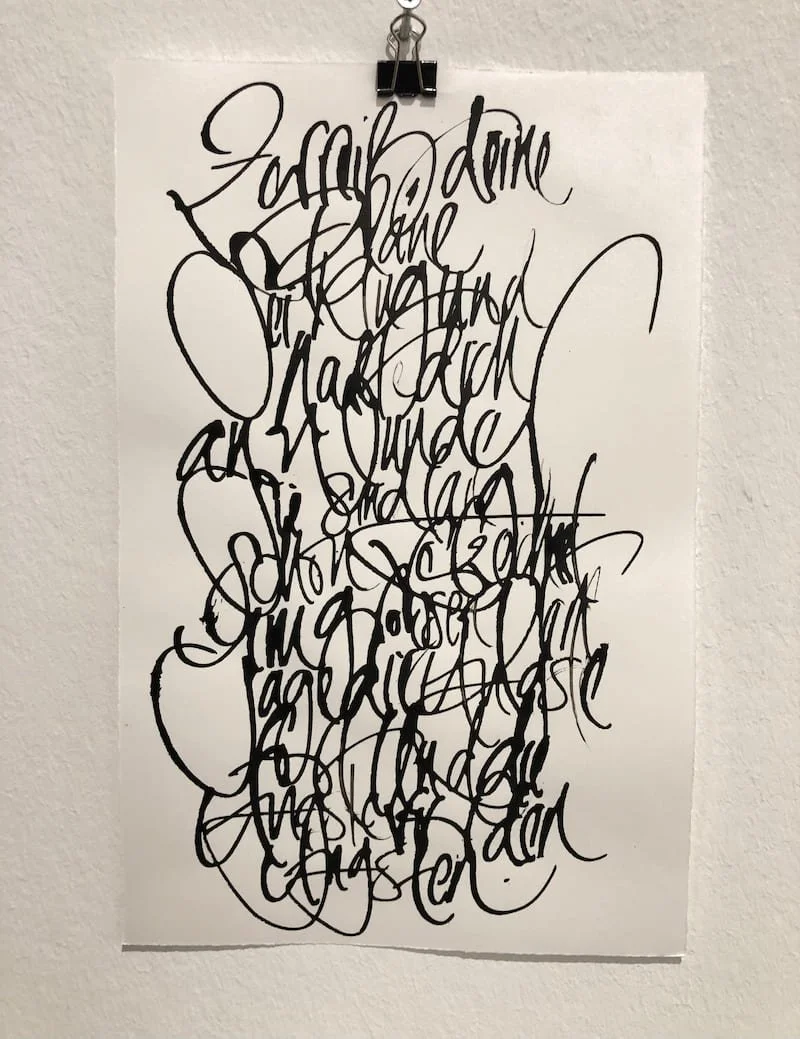 Zerreiß deine
Pläne
Sei klug und
halte dich
an Wunder
Sie sind lang
schon verzeichnet
im großen Plan
Jage die Ängste
fort und die
Angst vor den
Ängsten.